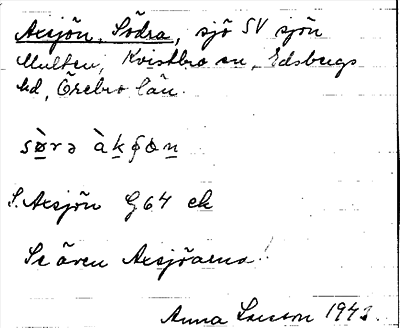 Axsjön, Södra, sjö SV sjön
Multen, Kvistbro sn, Edsbergs
hd, Örebro län.
sø̀rə àkʃøn
S. Axsjön G64 ek
Se även Axsjöarna!
Anna Larsson 1943.